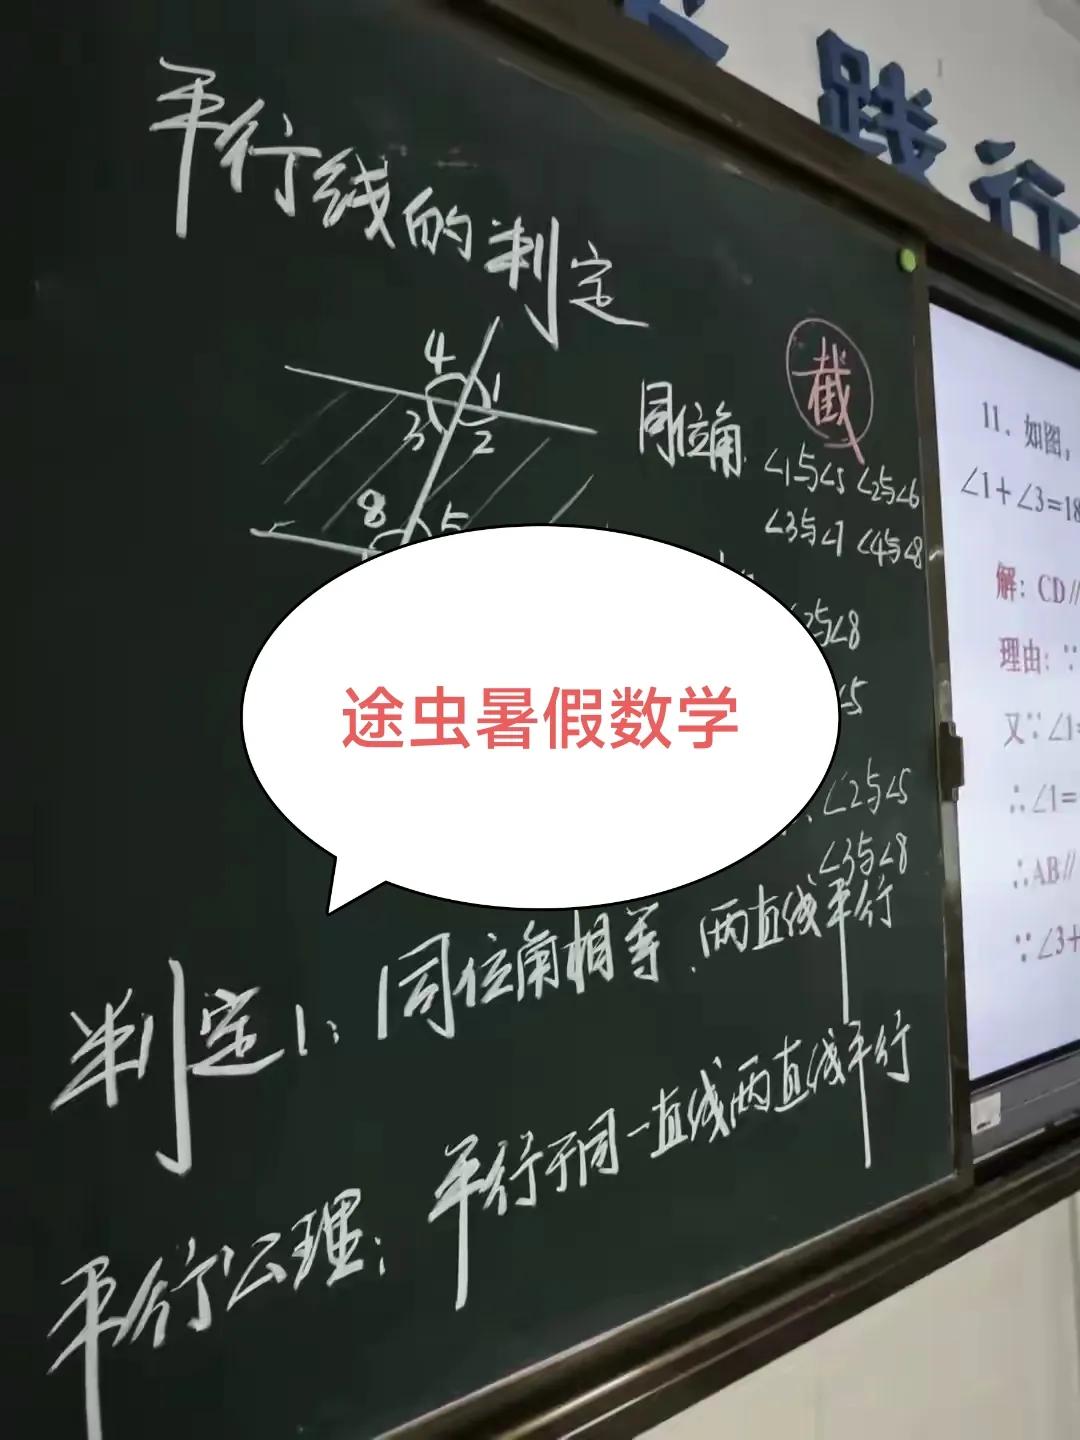 践行
平行线的判定
4
1
3
2
8
5
截
同位角
∠1与∠5 ∠2与∠6
∠3与∠7 ∠4与∠8
与∠8
∠5
∠2与∠5
∠3与∠8
途虫暑假数学
判定1：同位角相等、两直线平行
平行公理：平行于同一直线两直线平行
11．如图，
∠1＋∠3＝18
解：CD∥
理由：∵
又∵∠1＝
∴∠1＝
∴AB∥
∵∠3＋